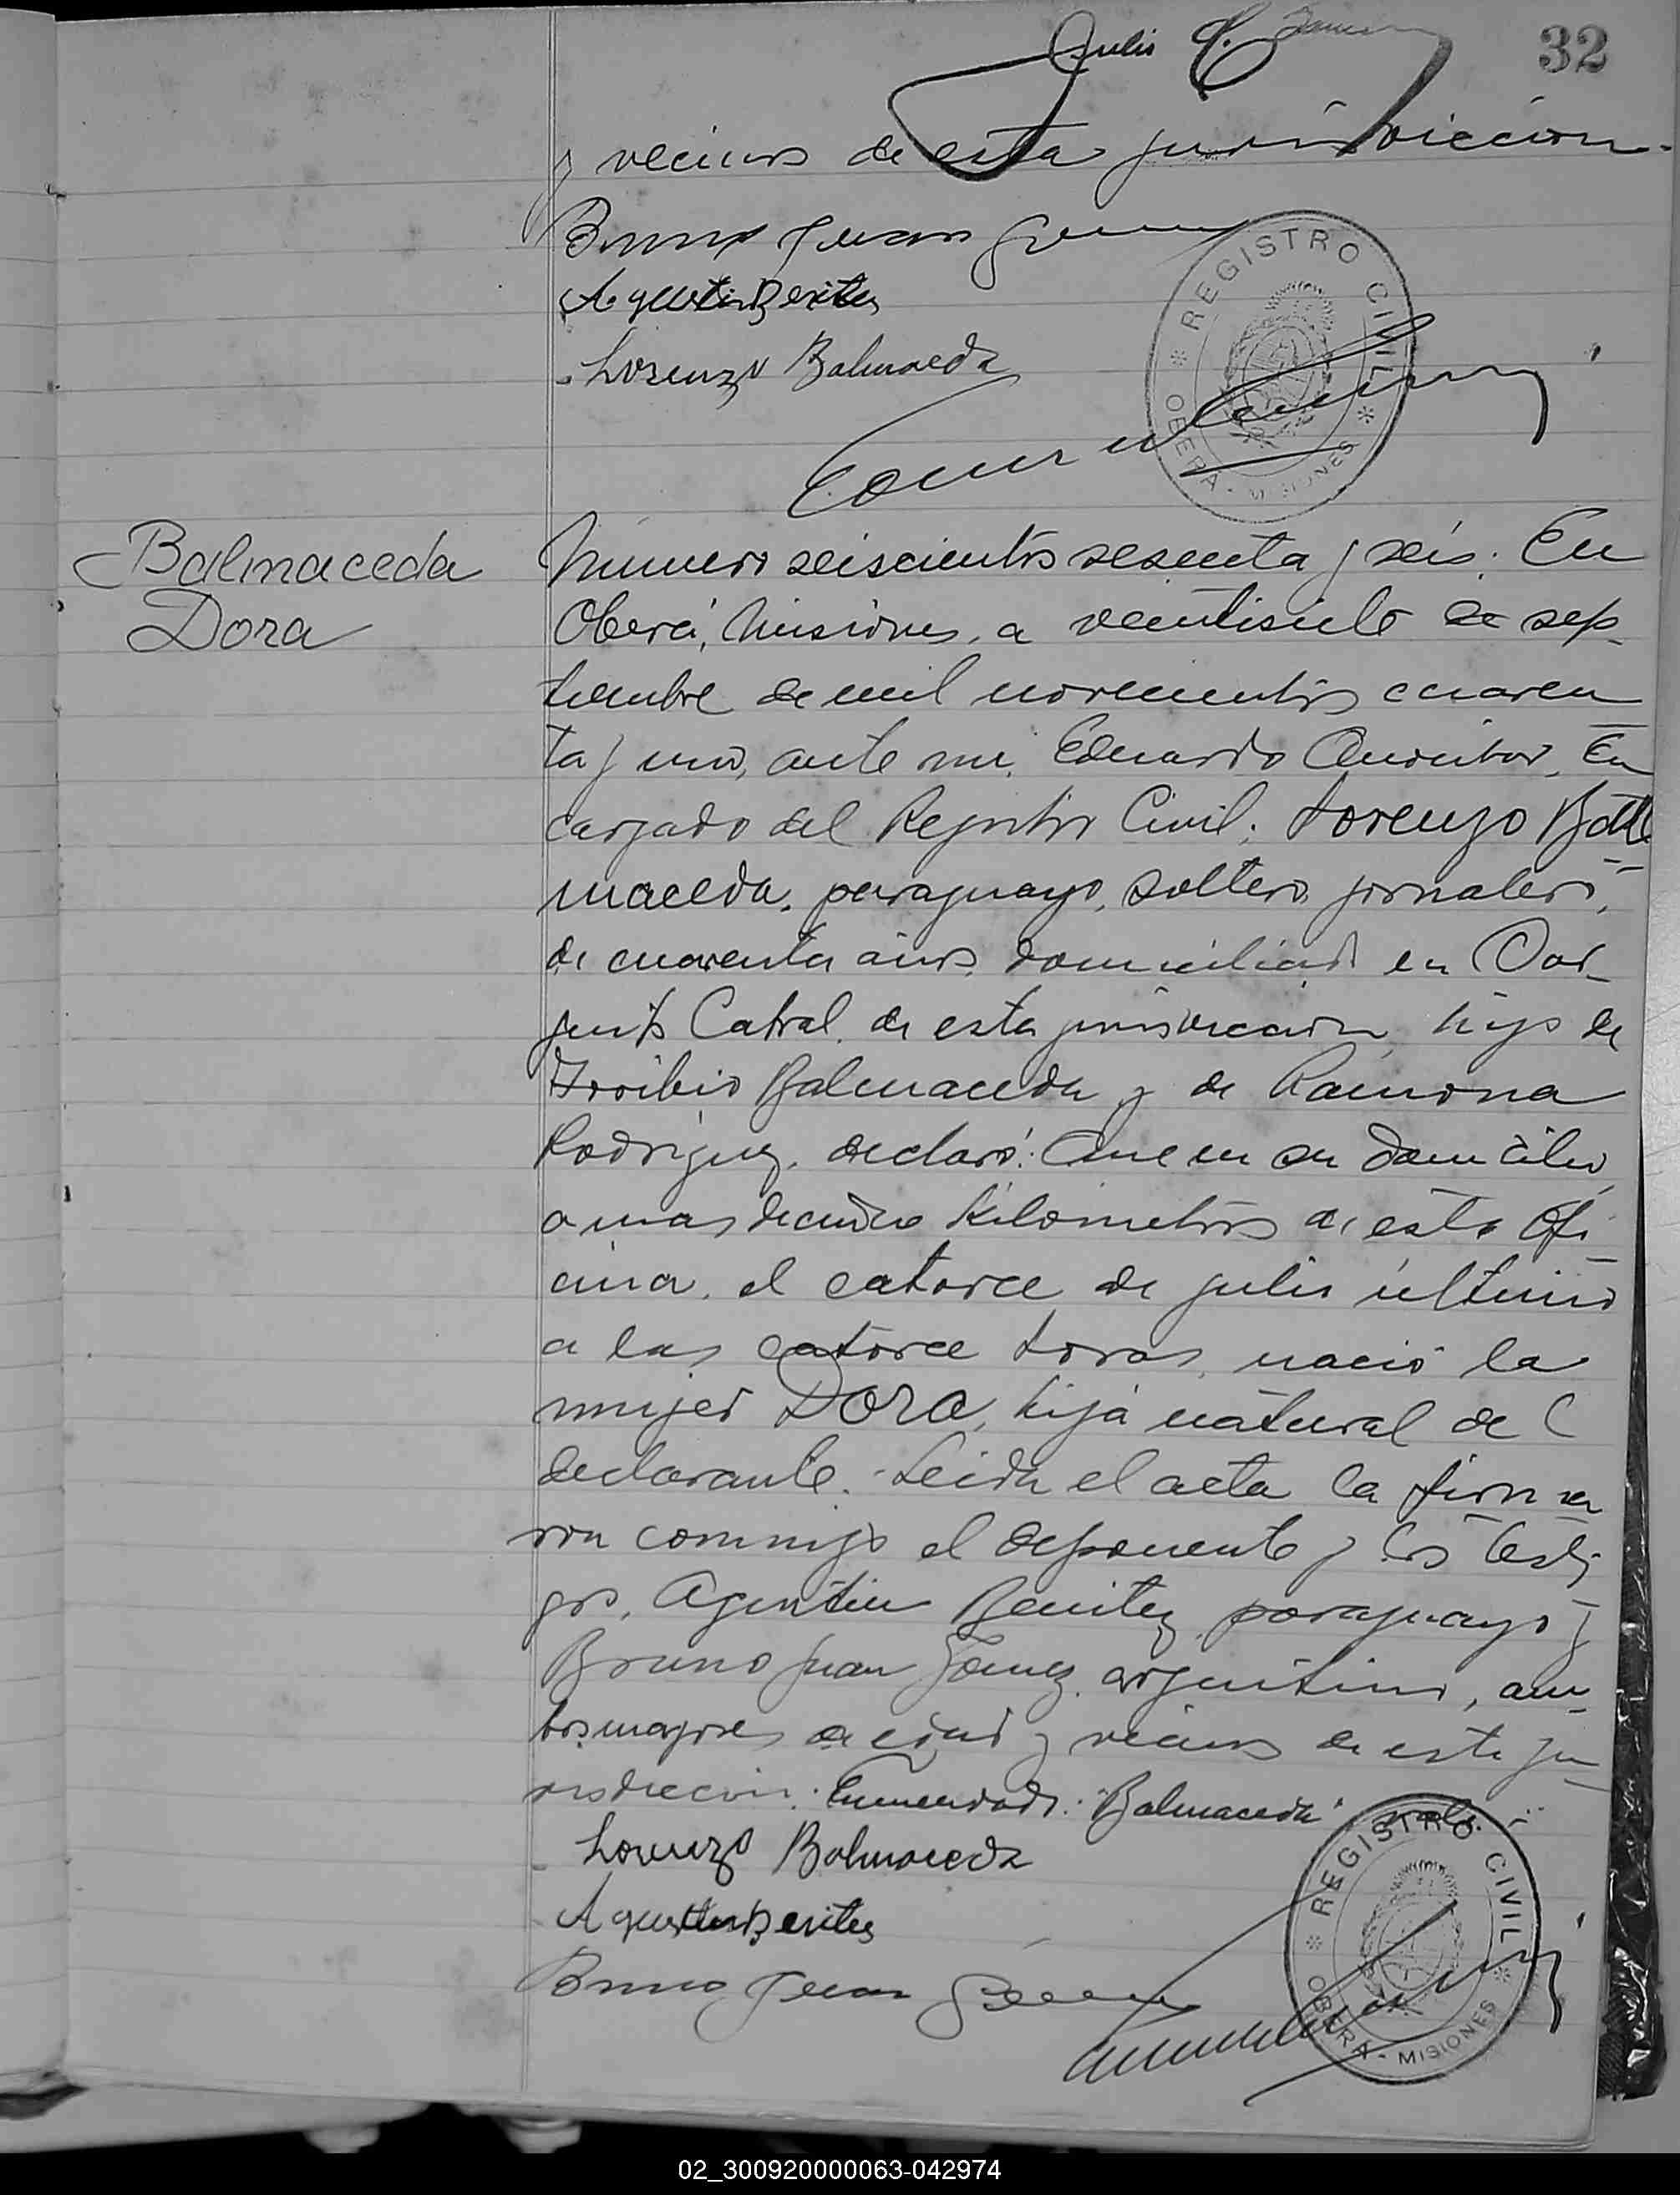 Julio
32
y vecinos de esta jurisdicción.
Bruno Juan Gomez
Agustin Benitez
Lorenzo Balmaceda
REGISTRO CIVIL
OBERÁ - MISIONES
Balmaceda
Dora
Número seiscientos sesenta y seis. En
Oberá, Misiones, a veintisiete de sep-
tiembre de mil novecientos cuaren
ta y uno, ante mi, Eduardo En
cargado del Registro Civil; Lorenzo Bal
maceda, paraguayo, soltero, jornalero,
de cuarenta años, domiciliado en Sar-
gento Cabral, de esta jurisdicción, hijo de
Toribio Balmaceda y de Ramona
Rodriguez, declaró: Que en su domicilio,
a mas de cinco kilometros de esta ofi
cina, el catorce de julio último
a las catorce horas, nació la
mujer Dora, hija natural del
declarante. Leida el acta la firma
ron conmigo el deponente y los testi
gos, Agustin Benitez, paraguayo y
Bruno Juan Gomez, argentino, am-
bos mayores de edad y vecinos de esta ju
risdicción. Enmendado: "Balmaceda" vale.
Lorenzo Balmaceda
Agustin Benitez
Bruno Juan Gomez
REGISTRO CIVIL
OBERÁ - MISIONES
02_300920000063-042974